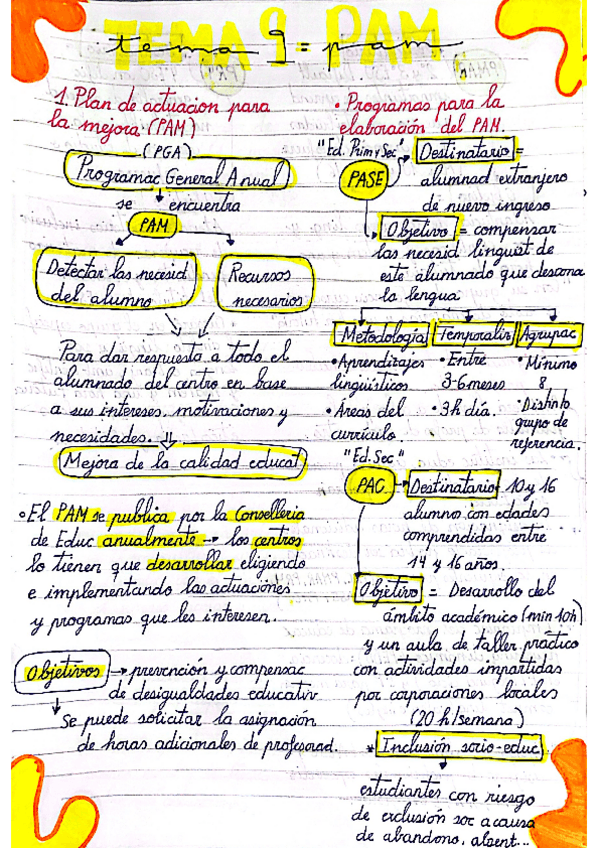 tema 9 = pam
1. Plan de actuacion para
la mejora (PAM)
(PGA)
Programac General Anual
se encuentra
PAM
Detectar las necesid
del alumno
Recursos
necesarios
Para dar respuesta a todo el
alumnado del centro en base
a sus intereses, motivaciones y
necesidades.
Mejora de la calidad educat
• El PAM se publica por la Conselleria
de Educ anualmente → los centros
lo tienen que desarrollar eligiendo
e implementando las actuaciones
y programas que les interesen.
Objetivos → prevención y compensac
de desigualdades educativ
Se puede solicitar la asignación
de horas adicionales de profesorad.
• Programas para la
elaboración del PAM.
"Ed. Prim y Sec"
PASE
Destinatario =
alumnad extranjero
de nuevo ingreso
Objetivo = compensar
las necesid linguist de
este alumnado que descona
la lengua
Metodologia Temporaliz Agrupac
• Aprendizajes
lingüísticos
• Áreas del
currículo.
• Entre
3-6 meses
• 3h día.
• Mínimo
8
• Distinto
grupo de
referencia.
"Ed. Sec"
PAC → Destinatario 10 y 16
alumno con edades
comprendidas entre
14 y 16 años.
Objetivo = Desarrollo del
ámbito académico (min 10h)
y un aula de taller práctico
con actividades impartidas
por corporaciones locales
(20 h/semana)
* Inclusión socio-educ
estudiantes con riesgo
de exclusión soc a causa
de abandono, absent...